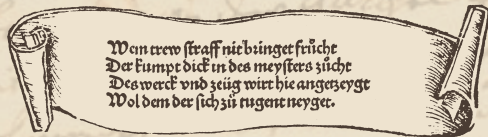 Wem trew straff nit bringet frücht
Der kumpt dick in des meysters zücht
Des werck vnd zeüg wirt hie angetzeygt
Wol dem der sich zů tugent neyget.